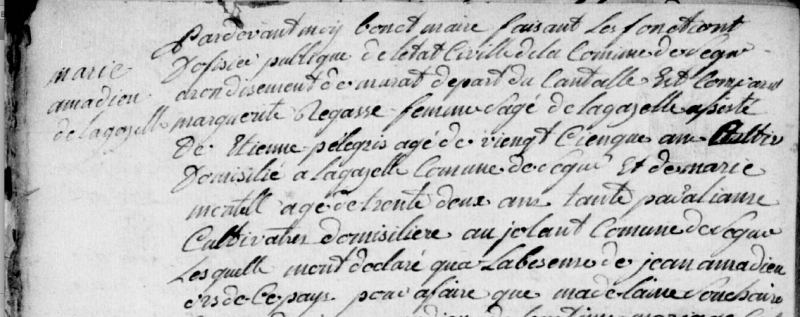 marie
amadieu
de lagazelle
Pardevant moy bonet maire faisant les fonctions
Dofisié publique de letat Civille de la Comune de Segur
arondisement de murat depart du Cantalle Est Comparu
marguerite Regasse femme sage de lagazelle asesté
De Etienne pélegris agé de viengt Cienque ans Cultiv
Domisilié a lagazelle Comune de Segur Et de marie
montell agé de trente deux ans tante par aliance
Cultivatrise domisiliere au jolant Comune de Segur
Lesquelle mont déclaré qua Labesense de jean amadieu
ors de Ce pays pour afaire que madelaine Souchaire